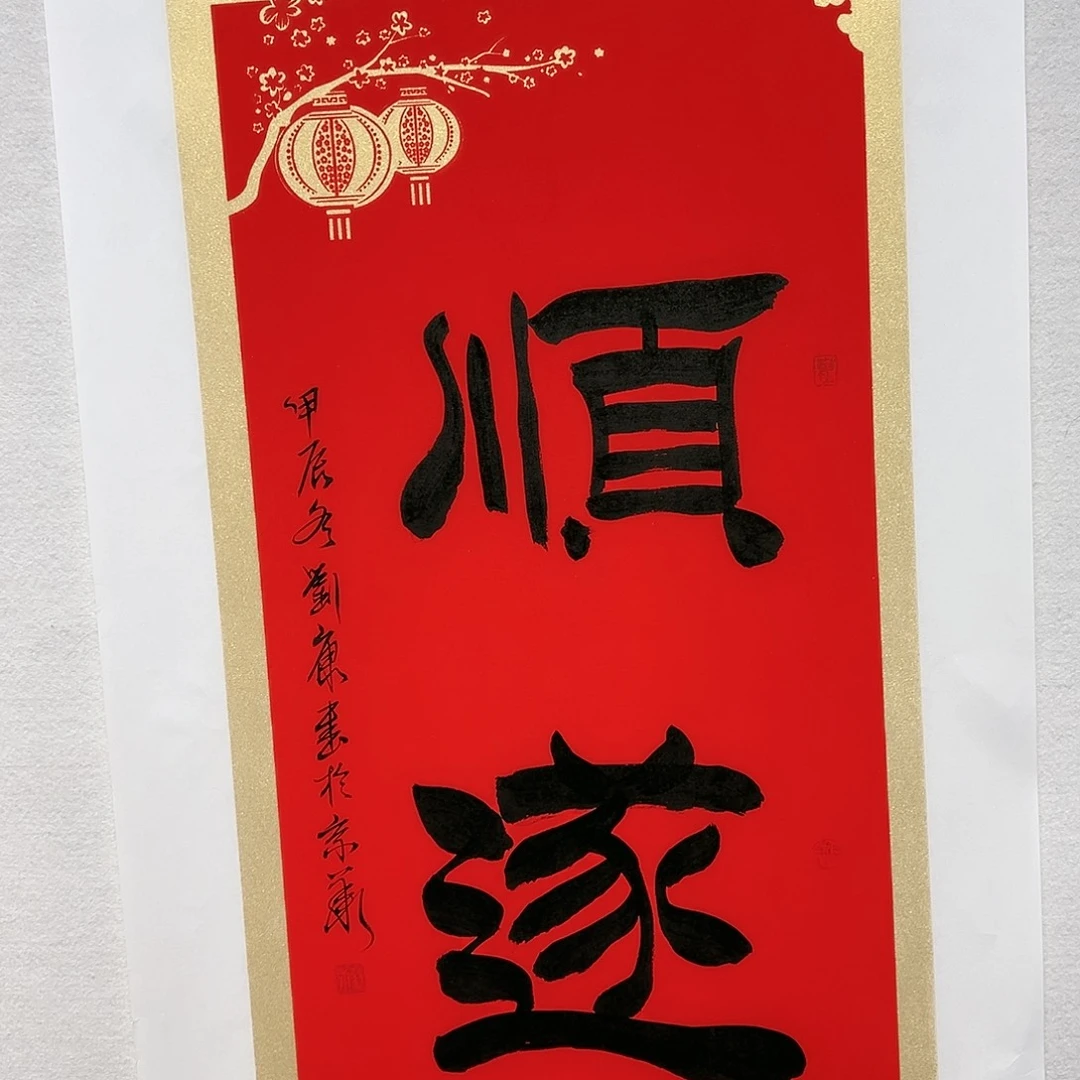 順
遂
甲辰冬劉康書於京華